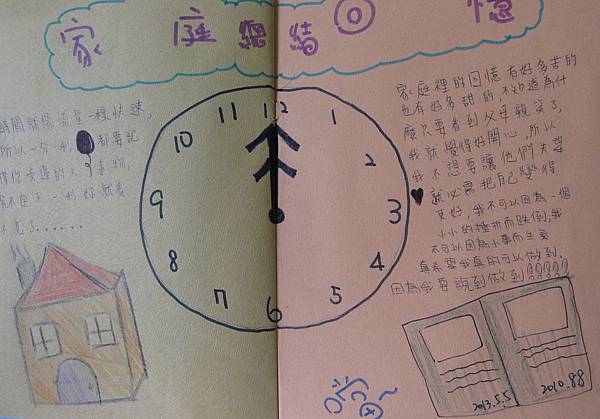 家庭網結回憶
時間就像流星一樣快速,
所以一分一秒都要記
得你旁邊的人事物,
說不定下一秒你就看
不見了......
家庭裡的回憶有好多苦的
也有好多甜的,不知道為什
麼只要看到父母親笑了,
我就覺得好開心,所以
我不想要讓他們失望
就必需把自己變得
更好,我不可以因為一個
小小的挫折而跌倒,我
不可以因為小事而生氣
真希望我真的可以做到,
因為我要說到做到?????
12
1
2
3
4
5
6
7
8
9
10
11
2013.5.5
2010.8.8